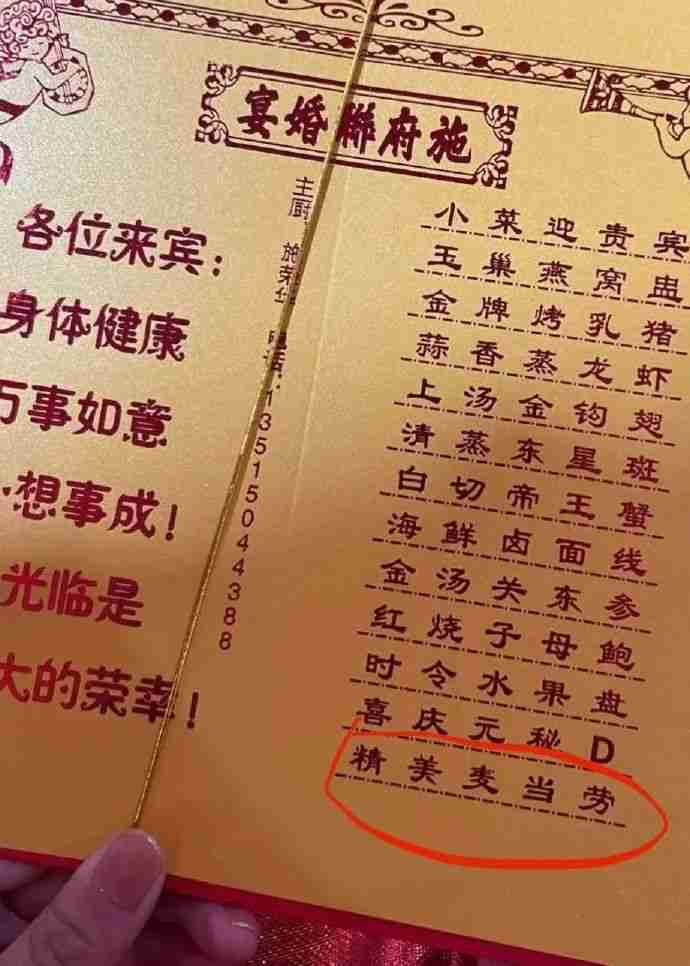 施府聯婚宴
各位来宾:
身体健康
万事如意
想事成!
光临是
大的荣幸!
主厨 施荣 电话:13515044388
小菜迎贵宾
玉巢燕窝盅
金牌烤乳猪
蒜香蒸龙虾
上汤金钩翅
清蒸东星斑
白切帝王蟹
海鲜卤面线
金汤关东参
红烧子母鲍
时令水果盘
喜庆元秘D
精美麦当劳